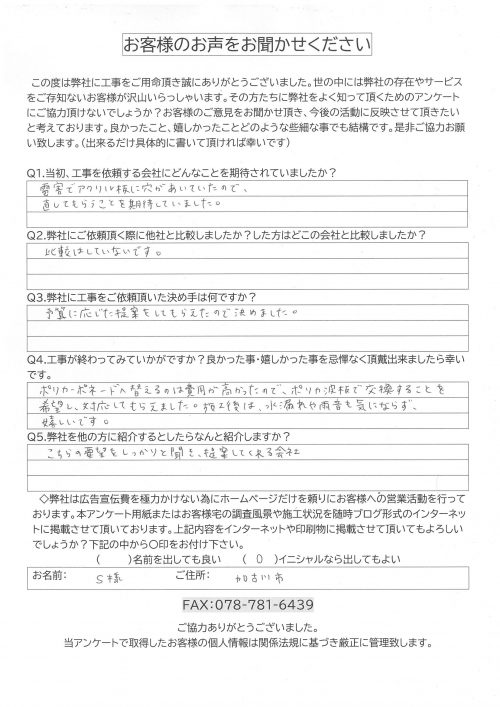 お客様のお声をお聞かせください
この度は弊社に工事をご用命頂き誠にありがとうございました。世の中には弊社の存在やサービス
をご存知ないお客様が沢山いらっしゃいます。その方たちに弊社をよく知って頂くためのアンケート
にご協力頂けないでしょうか？お客様のご意見をお聞かせ頂き、今後の活動に反映させて頂きたい
と考えております。良かったこと、嬉しかったことどのような些細な事でも結構です。是非ご協力お願
い致します。（出来るだけ具体的に書いて頂ければ幸いです）
Q1.当初、工事を依頼する会社にどんなことを期待されていましたか？
雹害でアクリル板に穴があいていたので、
直してもらうことを期待していました。
Q2.弊社にご依頼頂く際に他社と比較しましたか？した方はどこの会社と比較しましたか？
比較はしていないです。
Q3.弊社に工事をご依頼頂いた決め手は何ですか？
予算に応じた提案をしてもらえたので決めました。
Q4.工事が終わってみていかがですか？良かった事・嬉しかった事を忌憚なく頂戴出来ましたら幸い
です。
ポリカーボネードへ替えるのは費用が高かったので、ポリカ波板で交換することを
希望し、対応してもらえました。施工後は、水漏れや雨音も気にならず、
嬉しいです。
Q5.弊社を他の方に紹介するとしたらなんと紹介しますか？
こちらの要望をしっかりと聞き、提案してくれる会社
◇弊社は広告宣伝費を極力かけない為にホームページだけを頼りにお客様への営業活動を行って
おります。本アンケート用紙またはお客様宅の調査風景や施工状況を随時ブログ形式のインターネッ
トに掲載させて頂いております。上記内容をインターネットや印刷物に掲載させて頂いてもよろしい
でしょうか？下記の中から〇印をお付け下さい。
（　　）名前を出しても良い　（ 〇 ）イニシャルなら出してもよい
お名前：　S様　ご住所：　加古川市
FAX：078-781-6439
ご協力ありがとうございました。
当アンケートで取得したお客様の個人情報は関係法規に基づき厳正に管理致します。